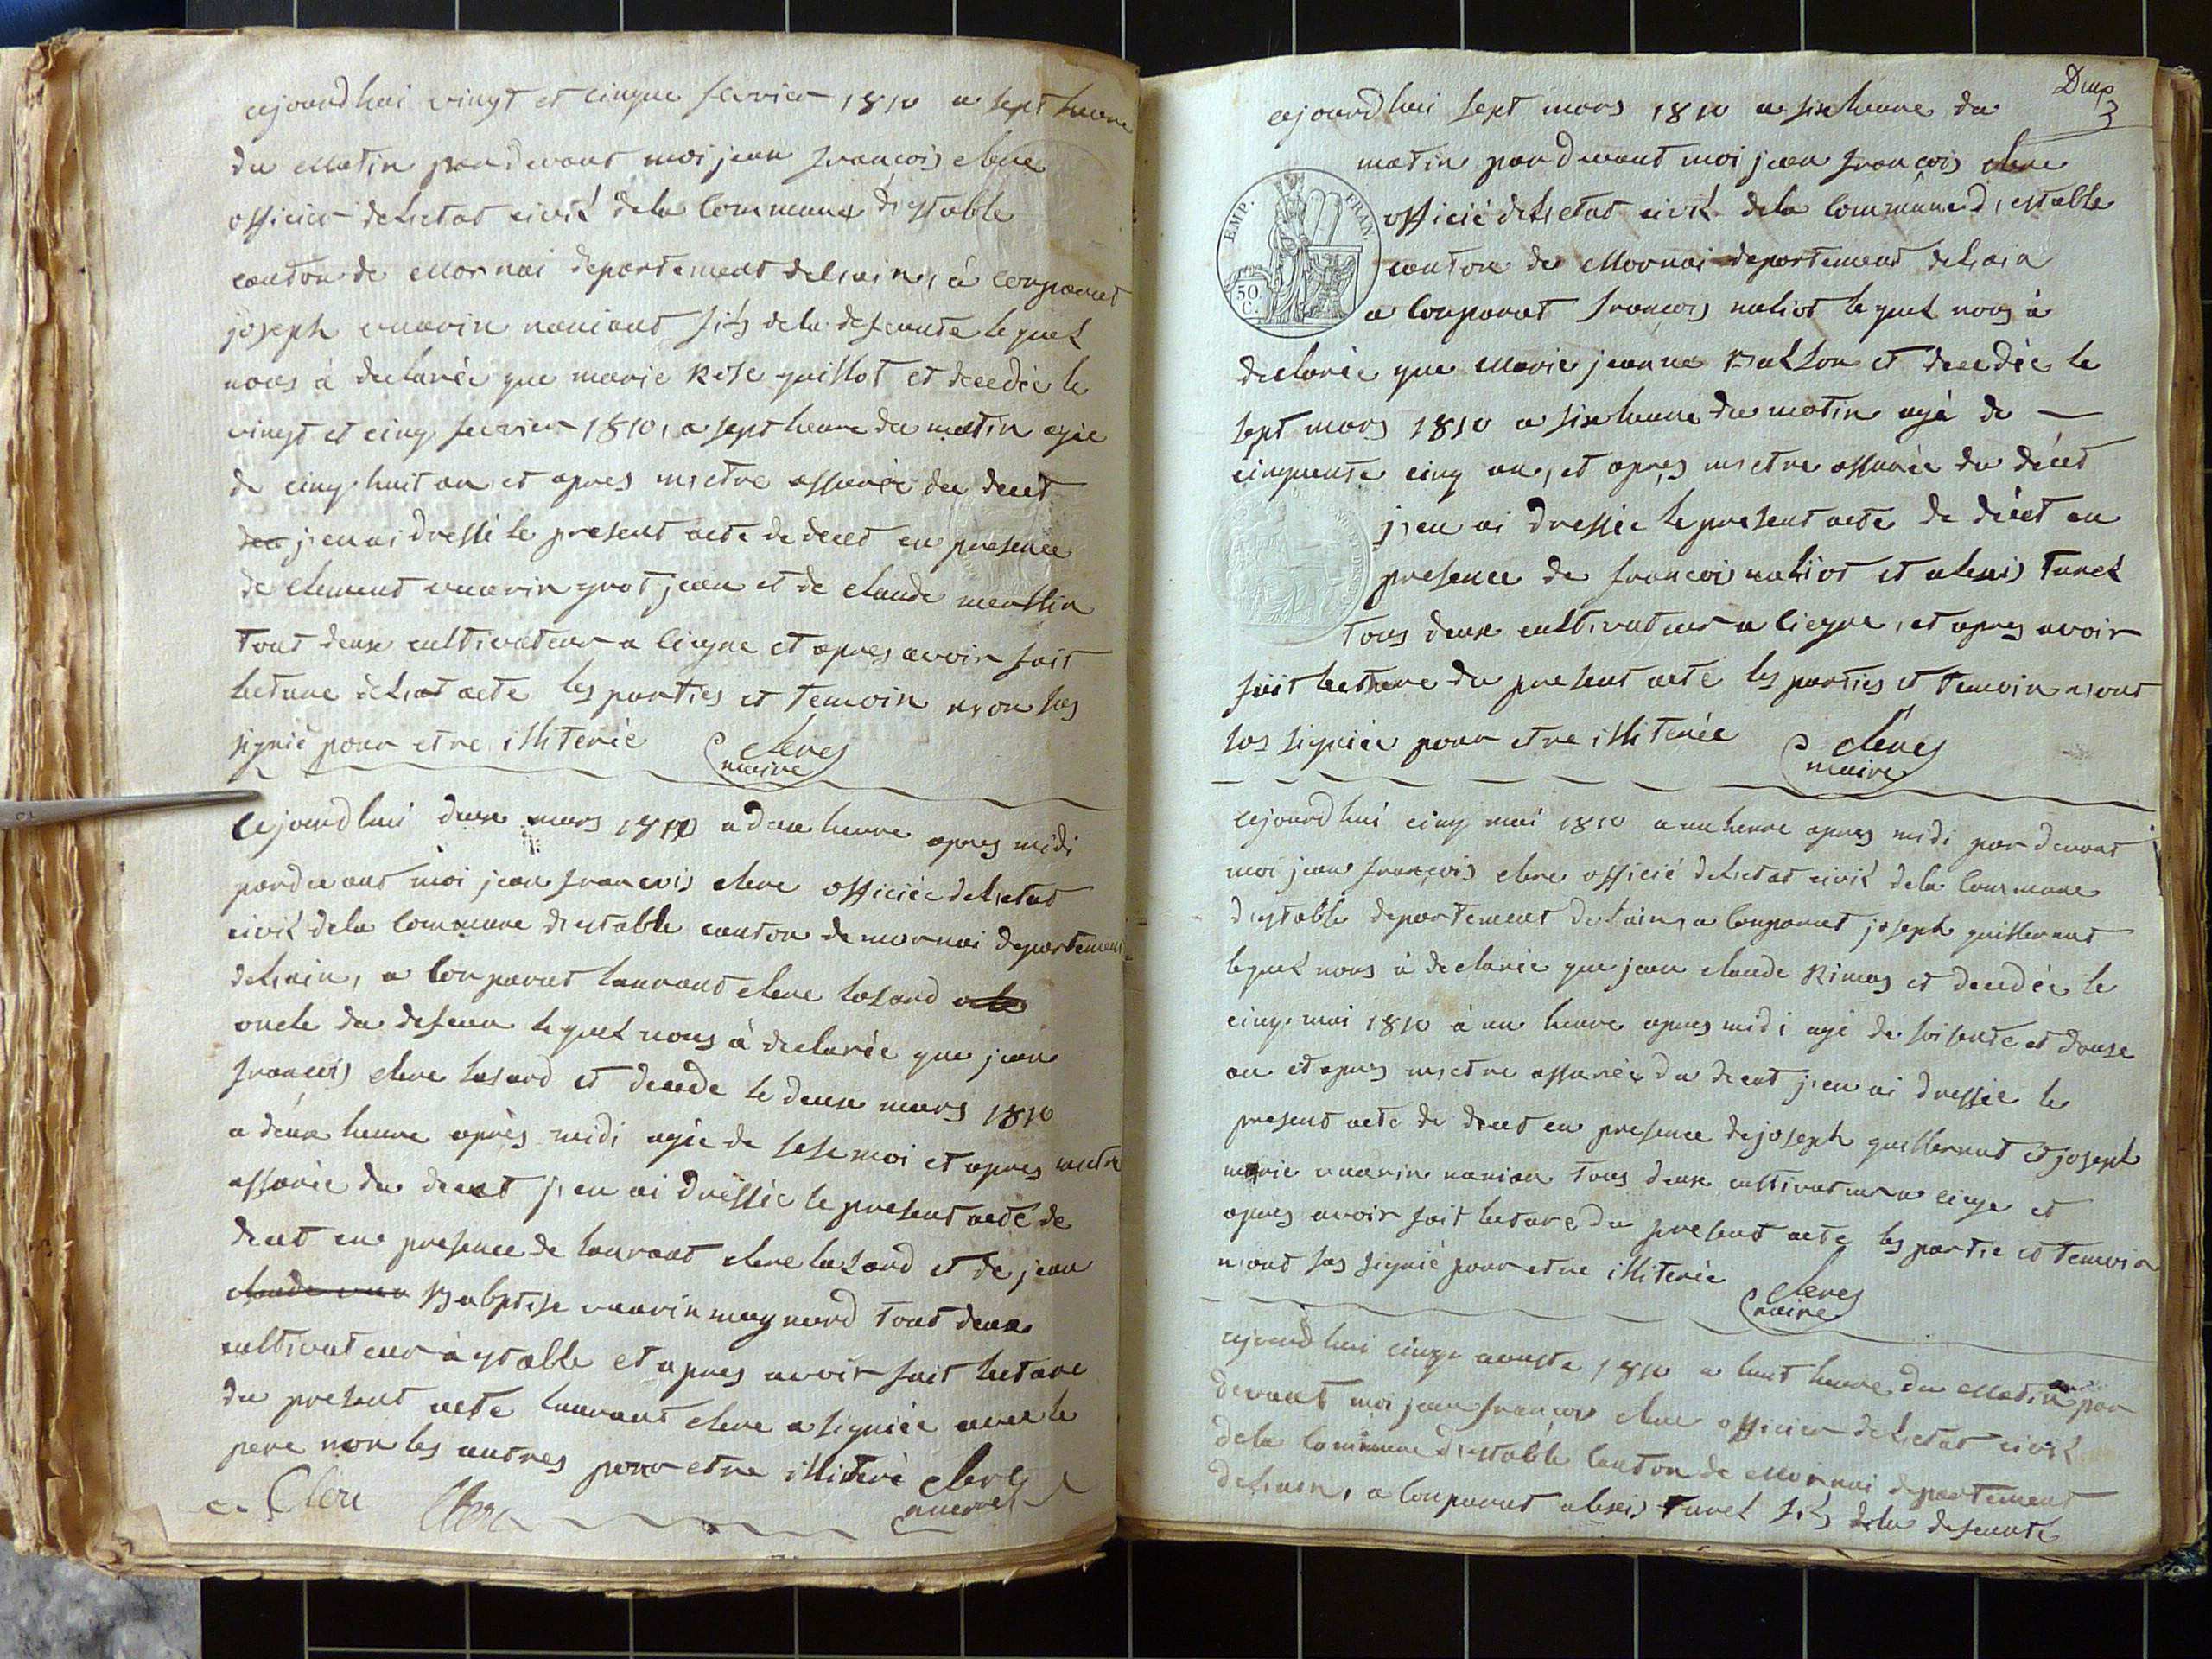 cejourdhui vingt et cinque fevrier 1810 a sept heure
du Matin pardevant moi jean francois clerc
officier deletat civil dela Commune d,estable
canton de Mornai departement delain, à comparut
joseph vuarin naniant fils dela defeunte lequel
nous à declarée que marie Rose guillot et decedée le
vingt et cinq fevrier 1810, a sept heure du matin agée
de cinq huit an et apres m,etre assurée du decet
deu j,en ai dressé le present acte de decet en presence
de clement vuarin grot jean et de claude
tout deux cultivateur a Ciegne et apres avoir fait
lecture de cet acte les parties et temoin n,on sas
signié pour etre illiterée clerc
maire
Cejourdhui deux mars 1810 a deux heure apres midi
pardevant moi jean francois clerc officiée deletat
civil dela Commune d,estable canton de mornai departement
delain, a Comparut laurant clerc lasard
oncle du defeun lequel nous à declarée que jean
francois clerc lasard et decede le deux mars 1810
a deux heure après midi agée de sese moi et apres metre
assurée du decet j,en ai dressée le present acte de
decet en presence de laurant clerc lasard et de jean
claude Babptise vuarin maynard tout deux
cultivateur à estable et apres avoir fait lecture
du present acte laurant clerc a signiée avec le
pere non les autres pour etre illiteré clerc
maire
Clerc Clerc
Dup
3
cejourdhui sept mars 1810 a six heure du
matin pardevant moi jean francois clerc
EMP. FRAN.
50 C.
officié deletat civil dela Commune d,estable
canton de Mornai departement delain
a Comparut francois naliot lequel nous à
declarée que Marie jeanne Ballon et decedée le
sept mars 1810 a six heure du matin agé de
cinquente cinq an, et apres m,etre assurée du décet
j,en ai dressée le present acte de décet en
presence de francois naliot et alexis Turel
Tous deux cultivateur a Ciegne, et apres avoir
fait lecture du present acte les parties et temoin n,ont
sas signiée pour etre illiterée clerc
maire
cejourdhui cinq mai 1810 a un heure apres midi pardevant
moi jean francois clerc officié deletat civil dela Commune
d,estable departement delain, a Comparut joseph guillermet
lequel nous à declarée que jean claude Rimas et decedée le
cinq mai 1810 à un heure apres midi agé de soisente et douse
an et apres m,etre assurée du decet j,en ai dressée le
present acte de decet en presence de joseph guillermet et joseph
marie vuarin nanian Tous deux cultivateur a Ciege et
apres avoir fait lecture du present acte les partie et temoin
n,ont sas signié pour etre illiterée clerc
maire
cejourdhui cinge auuste 1810 a huit heure du Matin par
devant moi jean francois clerc officier deletat civil
dela Commune d,estable Canton de Mornai departement
delain, a Comparut alexis Turel fils dela defeunte